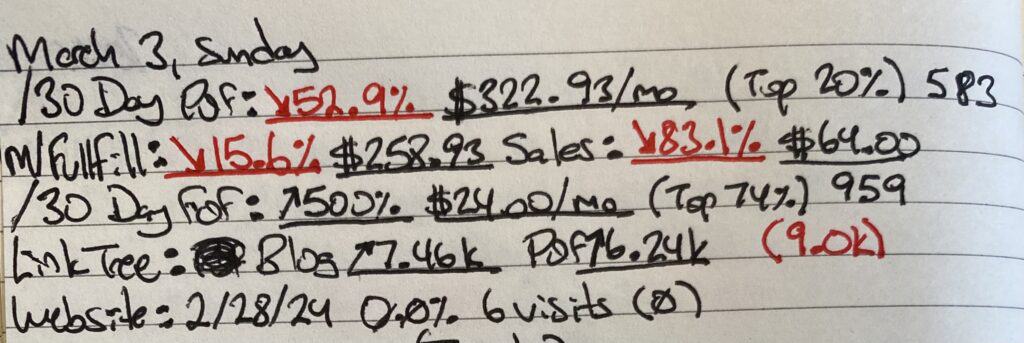 March 3, Sunday
/30 Day Pof: ↘52.9% $322.93/mo. (Top 20%) 583
M/Fullfill: ↘15.6% $258.93 Sales: ↘83.1% $64.00
/30 Day Fof: ↗500% $24.00/mo (Top 74%) 959
Link Tree: Blog ↗7.46k Pof ↗6.24k (9.0k)
Website: 2/28/24 0.0% 6 visits (Ø)